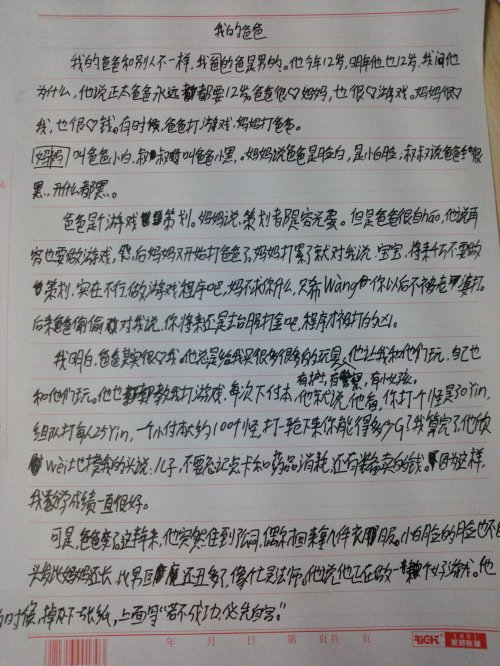 我的爸爸
我的爸爸和别人不一样,我的爸是男的。他今年12岁,明年他也12岁,我问他
为什么,他说正太爸爸永远都要12岁。爸爸很♡妈妈,也很♡游戏。妈妈很♡
我,也很♡钱。有时候,爸爸打游戏,妈妈打爸爸。
妈妈叫爸爸小白,叔叔叫爸爸小黑。妈妈说爸爸是脸白,是小白脸,叔叔说爸爸手很
黑..开什么都黑。
爸爸是个游戏策划。妈妈说,策划者都是穷光蛋。但是爸爸很自hao,他说再
穷也要做游戏,然后妈妈又开始打爸爸了,妈妈打累了就对我说:宝宝,将来千万不要做
策划,实在不行,做游戏程序吧,妈不求你什么,只希Wàng你以后不被老婆打。
后来爸偷偷对我说,你将来还是去台服打金吧,程序才被打的凶。
我明白,爸爸其实很♡我。他总是给我买很多很多的玩具,他让我和他们玩,自己也
有护士,有警察,有小女孩。
和他们玩。他也教我打游戏,每次下付本,他就说,他看,你打个怪是30Yin,
组队打每人25Yin,一个小付本大约100个怪,打一轮下来你能得多少G?我算完了,他欣
Wèi地摸我的头说:儿子,不要忘记点卡和药品消耗,还有装备卖的钱。因为这样,
我数学成绩一直很好。
可是,爸爸变了,这些年来,他突然住到了公司,偶尔回来拿几件衣服。小白脸的脸也不白
头发比妈妈还长,比男巫还丑多了,像亡灵法师。他说他正在做一款个好游戏。他
的时候,掉下一张纸,上面写"若不成功,必先自宫。"
年 月 日 第 页共 页
RiCH
1601